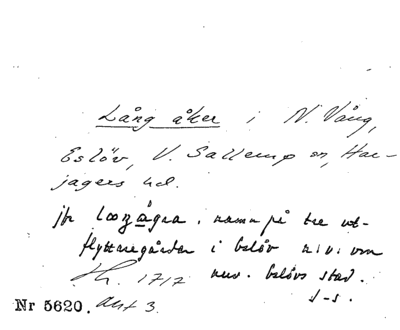 Lång åker i N. Vång,
Eslöv, V. Sallerup sn, Har-
jagers hd.
jfr långågra, namn på tre ut-
flyttaregårdar i Eslöv n.v. om
nuv. Eslövs stad.
1717
S-s.
Nr 5620. Akt 3.